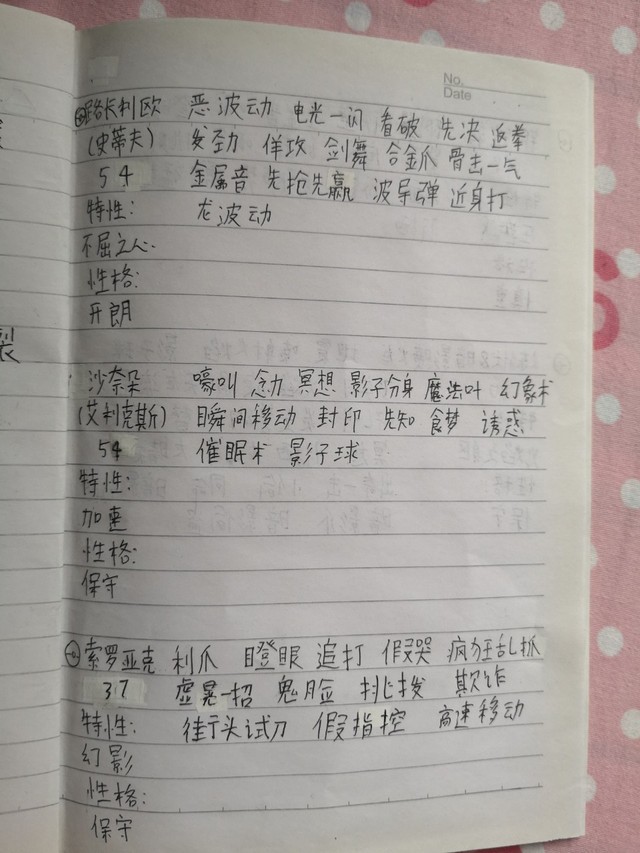 No.
Date
路卡利欧 恶波动 电光一闪 看破 先决 返拳
(史蒂夫) 发劲 佯攻 剑舞 合金爪 骨击一气
54 金属音 先抢先赢 波导弹 近身打
特性: 龙波动
不屈之心.
性格:
开朗
沙奈朵 嚎叫 念力 冥想 影子分身 魔法叶 幻象术
(艾利克斯) 瞬间移动 封印 先知 食梦 诱惑
54 催眠术 影子球
特性:
加速
性格:
保守
索罗亚克 利爪 瞪眼 追打 假哭 疯狂乱抓
37 虚晃一招 鬼脸 挑拨 欺诈
特性: 街头试刀 假指控 高速移动
幻影
性格:
保守
裂